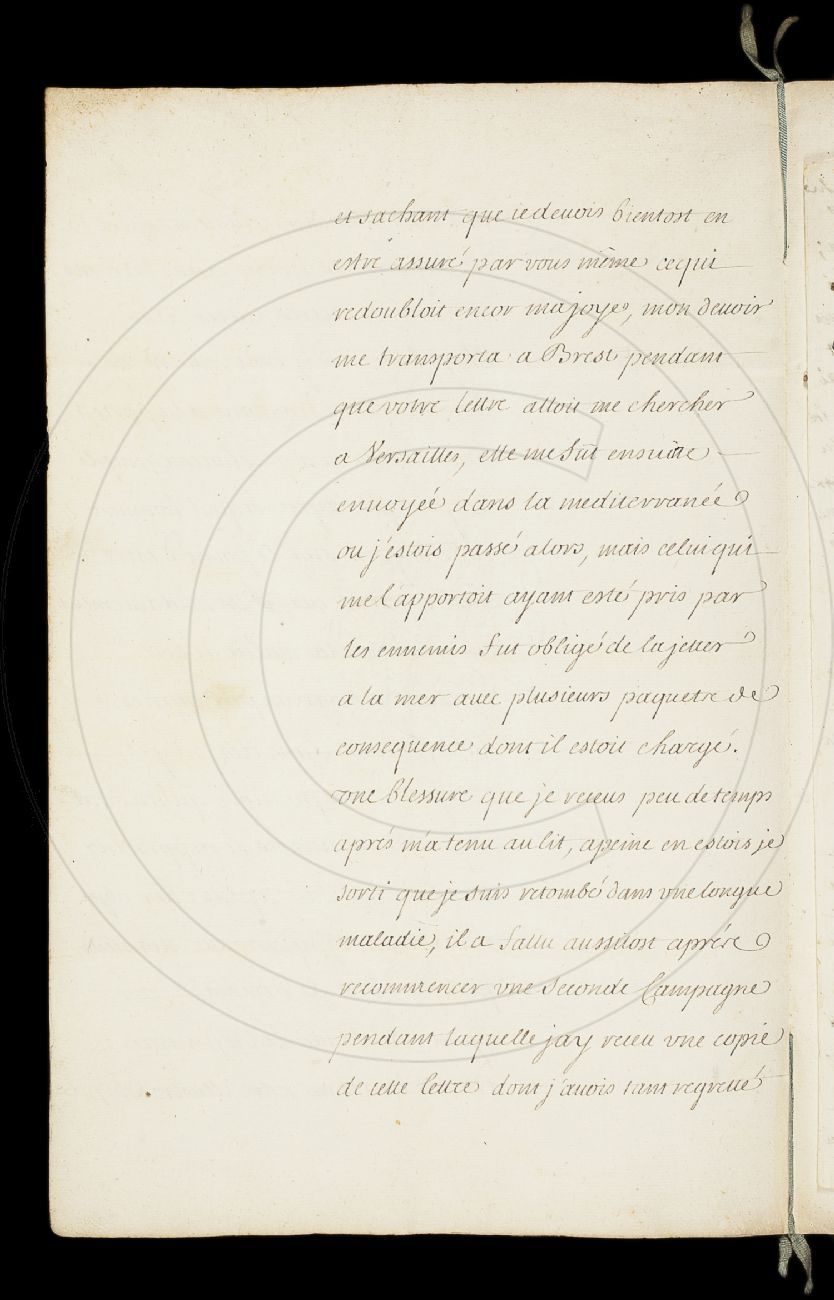 et sachant que ie deuois bientost en
estre assuré par vous même ce qui
redoubloit encor ma joye, mon deuoir
me transporta a Brest pendant
que votre lettre alloit me chercher
a Versailles, elle me fut ensuite
enuoyée dans la mediterranée
ou j'estois passé alors, mais celui qui
me l'apportoit ayant esté pris par
les ennemis fut obligé de la jetter
a la mer auec plusieurs paquets de
consequence dont il estoit chargé.
vne blessure que je receus peu de temps
aprés m'a tenu au lit, apeine en estois je
sorti que je suis retombé dans vne longue
maladie, il a fallu aussitost aprés
recommencer vne seconde Campagne
pendant laquelle jay receu vne copie
de cette lettre dont j'auois tant regretté